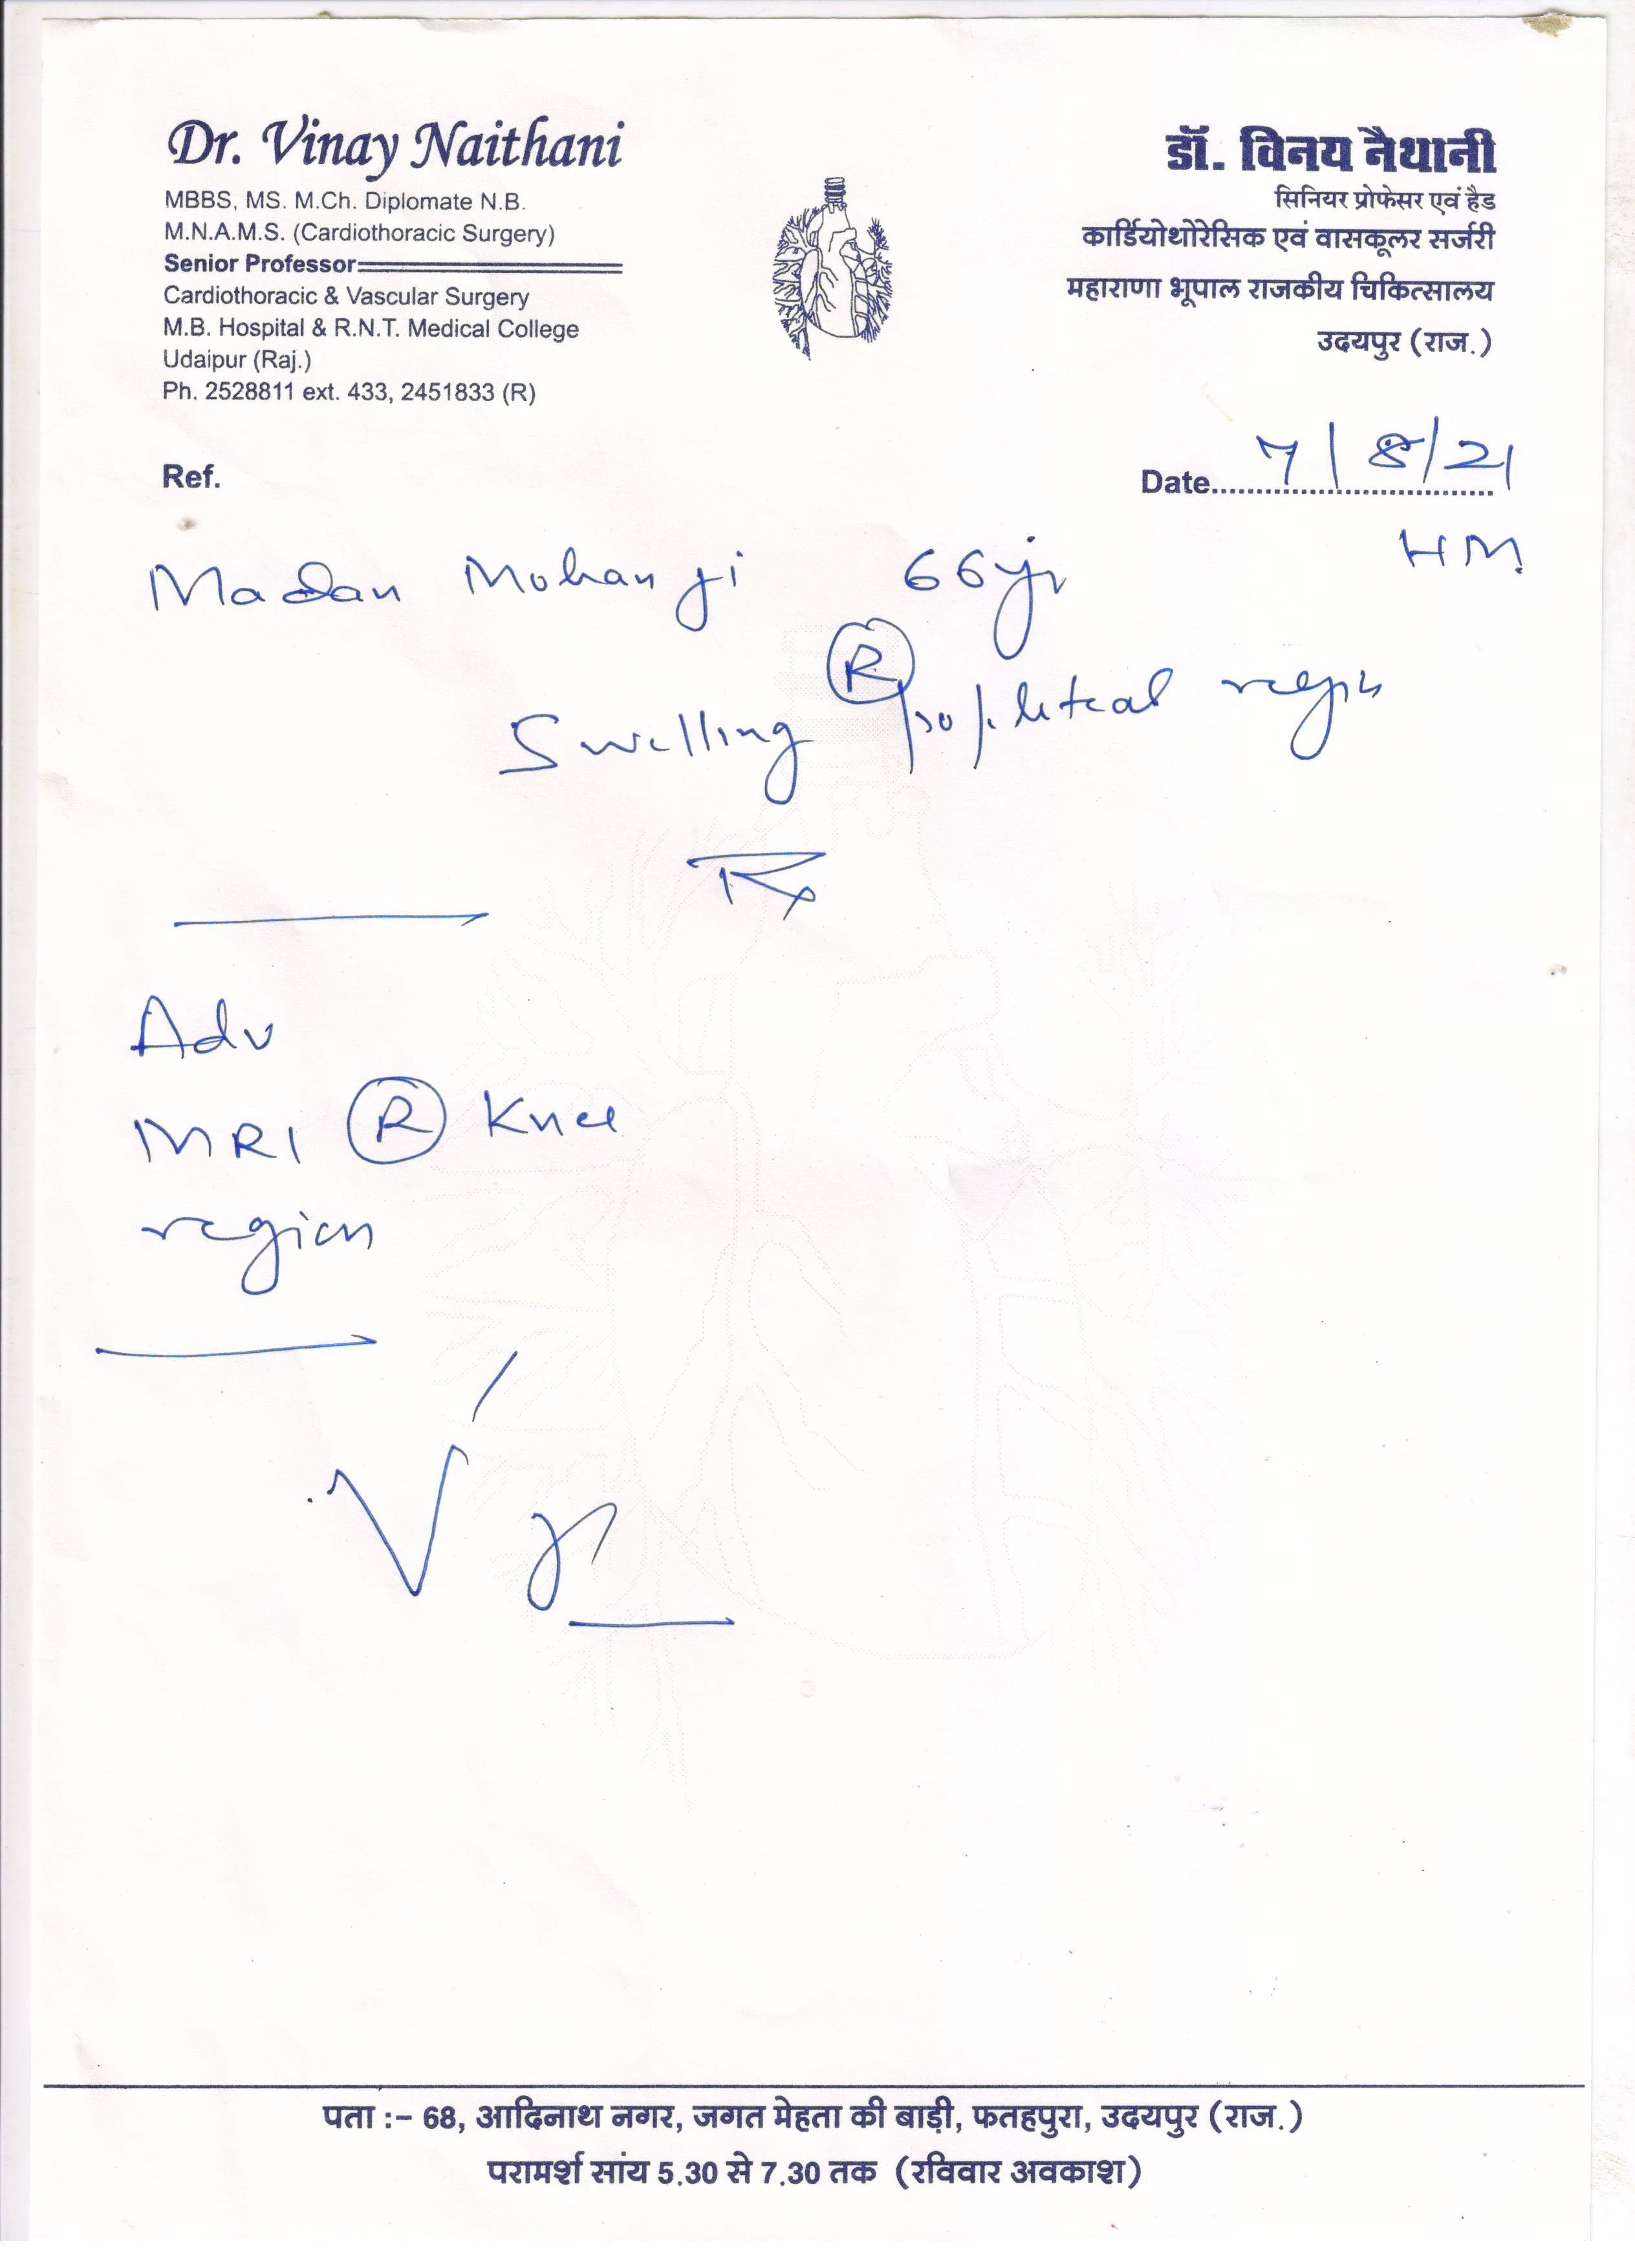 Dr. Vinay Naithani
MBBS, MS. M.Ch. Diplomate N.B.
M.N.A.M.S. (Cardiothoracic Surgery)
Senior Professor
Cardiothoracic & Vascular Surgery
M.B. Hospital & R.N.T. Medical College
Udaipur (Raj.)
Ph. 2528811 ext. 433, 2451833 (R)
डॉ. विनय नैथानी
सिनियर प्रोफेसर एवं हैड
कार्डियोथोरेसिक एवं वासकूलर सर्जरी
महाराणा भूपाल राजकीय चिकित्सालय
उदयपुर (राज.)
Ref.
Date 7/8/21
HM
Madan Mohan ji 66yr
Swelling R popliteal region
Rx
Adv
MRI R Knee
region
पता :- 68, आदिनाथ नगर, जगत मेहता की बाड़ी, फतहपुरा, उदयपुर (राज.)
परामर्श सांय 5.30 से 7.30 तक (रविवार अवकाश)